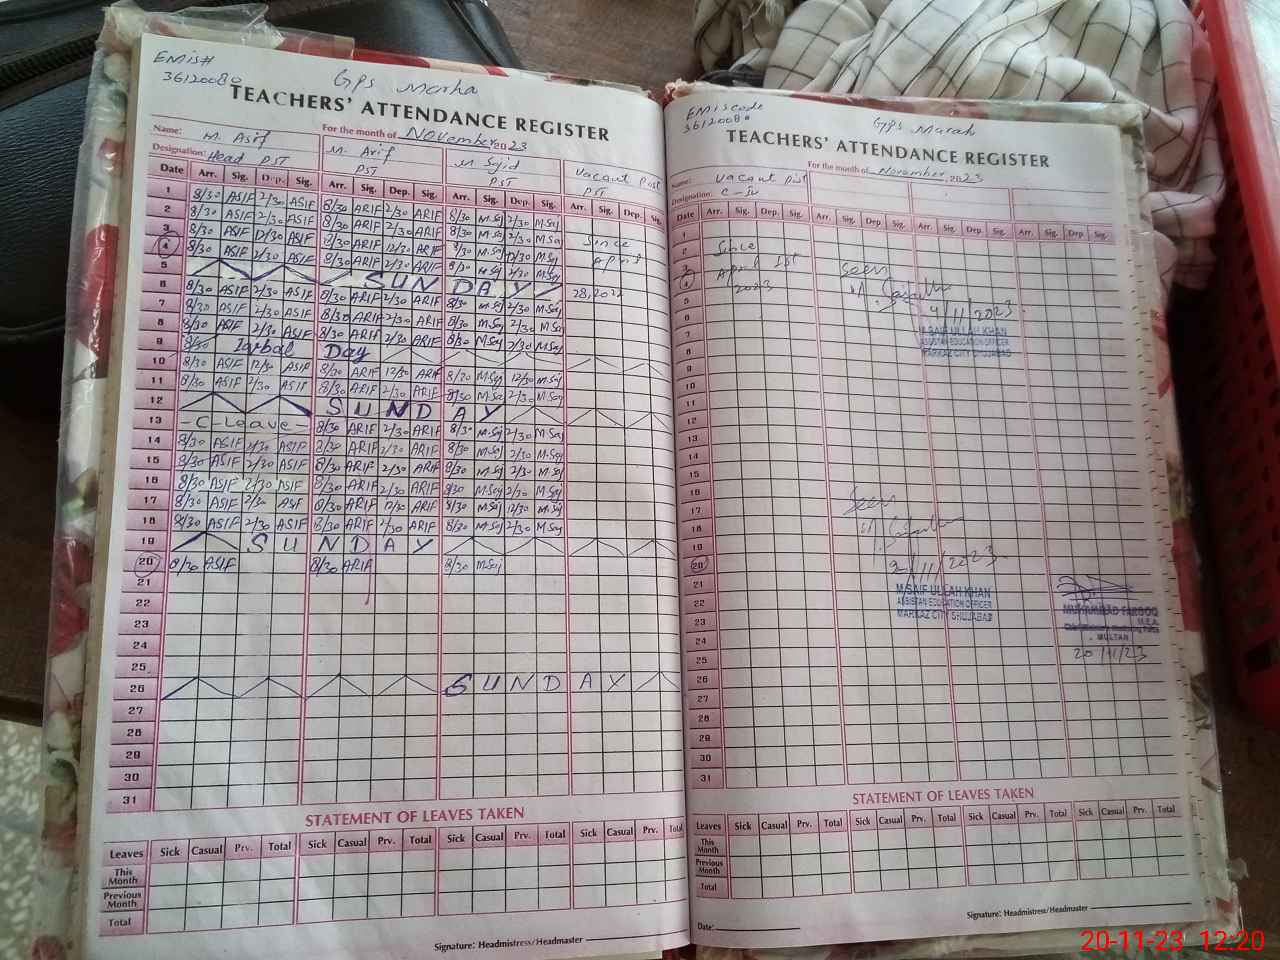 EMIS#
36120080
GPS Marha
TEACHERS' ATTENDANCE REGISTER
Name: M. Asif
For the month of November 2023
M. Arif
M Sajid
Vacant Post
Designation: Head PST
PST
PST
PST
Date Arr. Sig. Dep. Sig. Arr. Sig. Dep. Sig. Arr. Sig. Dep. Sig. Arr. Sig. Dep. Sig.
1 8/30 ASIF 2/30 ASIF 8/30 ARIF 2/30 ARIF 8/30 M.Saj 2/30 M.Saj
2 8/30 ASIF 2/30 ASIF 8/30 ARIF 2/30 ARIF 8/30 M.Saj 2/30 M.Sa Since
3 8/30 ASIF 12/30 ASIF 8/30 ARIF 12/30 ARIF 8/30 M.Saj 12/30 M.Saj April
4 8/30 ASIF 2/30 ASIF 8/30 ARIF 2/30 ARIF 8/30 M.Saj 2/30 M.Saj
5 SUNDAY 28,2022
6 8/30 ASIF 2/30 ASIF 8/30 ARIF 2/30 ARIF 8/30 M.Saj 2/30 M.Saj
7 8/30 ASIF 2/30 ASIF 8/30 ARIF 2/30 ARIF 8/30 M.Saj 2/30 M.Saj
8 8/30 ASIF 2/30 ASIF 8/30 ARIF 2/30 ARIF 8/30 M.Saj 2/30 M.Saj
9 Iqbal Day
10 8/30 ASIF 12/30 ASIF 8/30 ARIF 12/30 ARIF 8/30 M.Saj 12/30 M.Saj
11 8/30 ASIF 2/30 ASIF 8/30 ARIF 2/30 ARIF 8/30 M.Sa 2/30 M.Saj
12 SUNDAY
13 -C-Leave- 8/30 ARIF 2/30 ARIF 8/30 M.Saj 2/30 M.Saj
14 8/30 ASIF 2/30 ASIF 8/30 ARIF 2/30 ARIF 8/30 M.Saj 2/30 M.Saj
15 8/30 ASIF 2/30 ASIF 8/30 ARIF 2/30 ARIF 8/30 M.Saj 2/30 M.Saj
16 8/30 ASIF 2/30 ASIF 8/30 ARIF 2/30 ARIF 8/30 M.Saj 2/30 M.Saj
17 8/30 ASIF 2/30 ASIF 8/30 ARIF 12/30 ARIF 8/30 M.Saj 12/30 M.Saj
18 8/30 ASIF 2/30 ASIF 8/30 ARIF 2/30 ARIF 8/30 M.Saj 2/30 M.Saj
19 SUNDAY
20 8/30 ASIF 8/30 ARIF 8/30 M.Saj
21
22
23
24
25
26 SUNDAY
27
28
29
30
31
STATEMENT OF LEAVES TAKEN
Leaves Sick Casual Prv. Total Sick Casual Prv. Total Sick Casual Prv. Total Sick Casual Prv. Total
This Month
Previous Month
Total
Signature: Headmistress/Headmaster
EMIS code
36120080
GPS Marah
TEACHERS' ATTENDANCE REGISTER
For the month of November, 2023
Name: Vacant Post
Designation: C-IV
Date Arr. Sig. Dep. Sig. Arr. Sig. Dep. Sig. Arr. Sig. Dep. Sig. Arr. Sig. Dep. Sig.
1
2 Since
3 April 1st
4 2023
Seen
5
6
4/11/2023
7
M.SAIF ULLAH KHAN
ASSISTAN EDUCATION OFFICER
MARKAZ CITY SHUJABAD
8
9
10
11
12
13
14
15
16
17
Seen
18
19
20
2/11/2023
21
M.SAIF ULLAH KHAN
ASSISTAN EDUCATION OFFICER
MARKAZ CITY SHUJABAD
MUHAMMAD FAROOQ
M.E.A.
MULTAN
20/11/23
22
23
24
25
26
27
28
29
30
31
STATEMENT OF LEAVES TAKEN
Leaves Sick Casual Prv. Total Sick Casual Prv. Total Sick Casual Prv. Total Sick Casual Prv. Total
This Month
Previous Month
Total
Date:
Signature: Headmistress/Headmaster
20-11-23 12:20